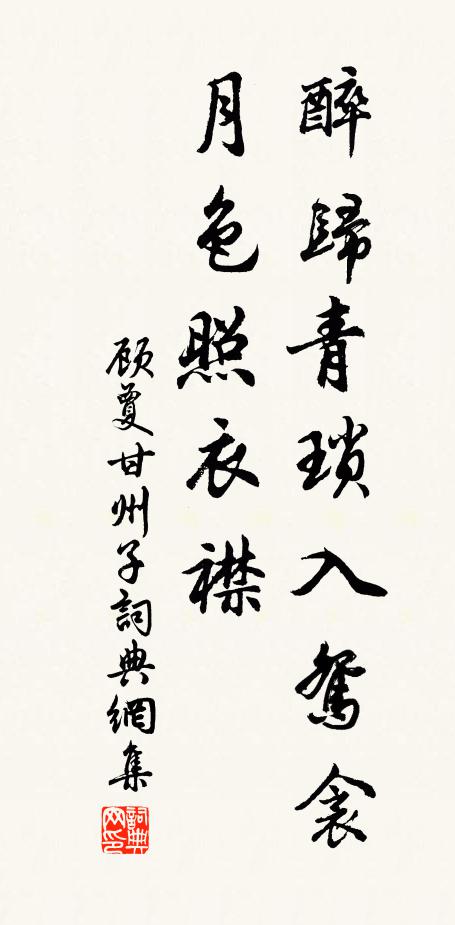 醉歸青瑣入鴛衾
月色照衣襟
顧夐甘州子詞典網集
詞典
网印